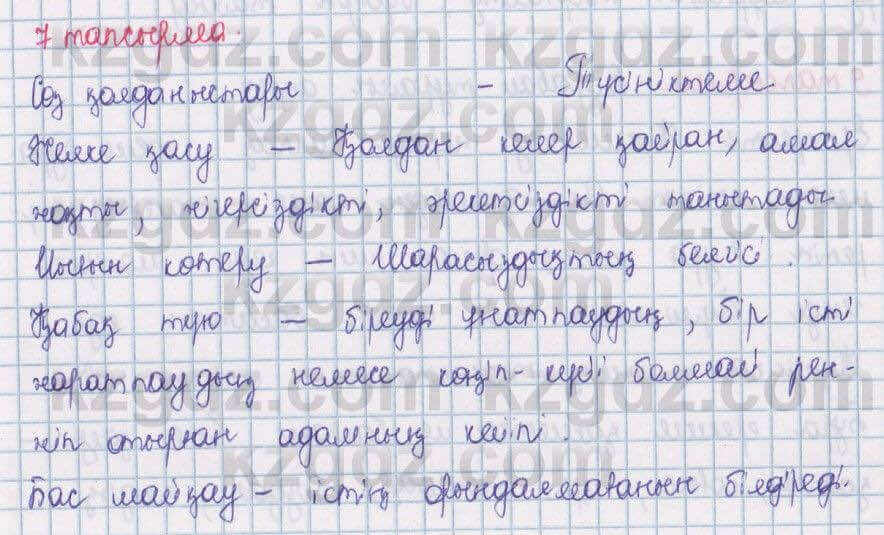 7 тапсырма.
Сөз қолданыстары - Түсініктеме
Желке қасу - Қолдан келер қайран, амал
жоқты, жігерсіздікті, әрекетсіздікті танытады.
Иығын көтеру - Шарасыздықтың белгісі.
Қабақ түю - біреуді ұнатпаудың, бір істі
жаратпаудың немесе көңіл-күйі болмай рен-
жіп отырған адамның кейпі.
Бас шайқау - істің орындалмағанын білдіреді.